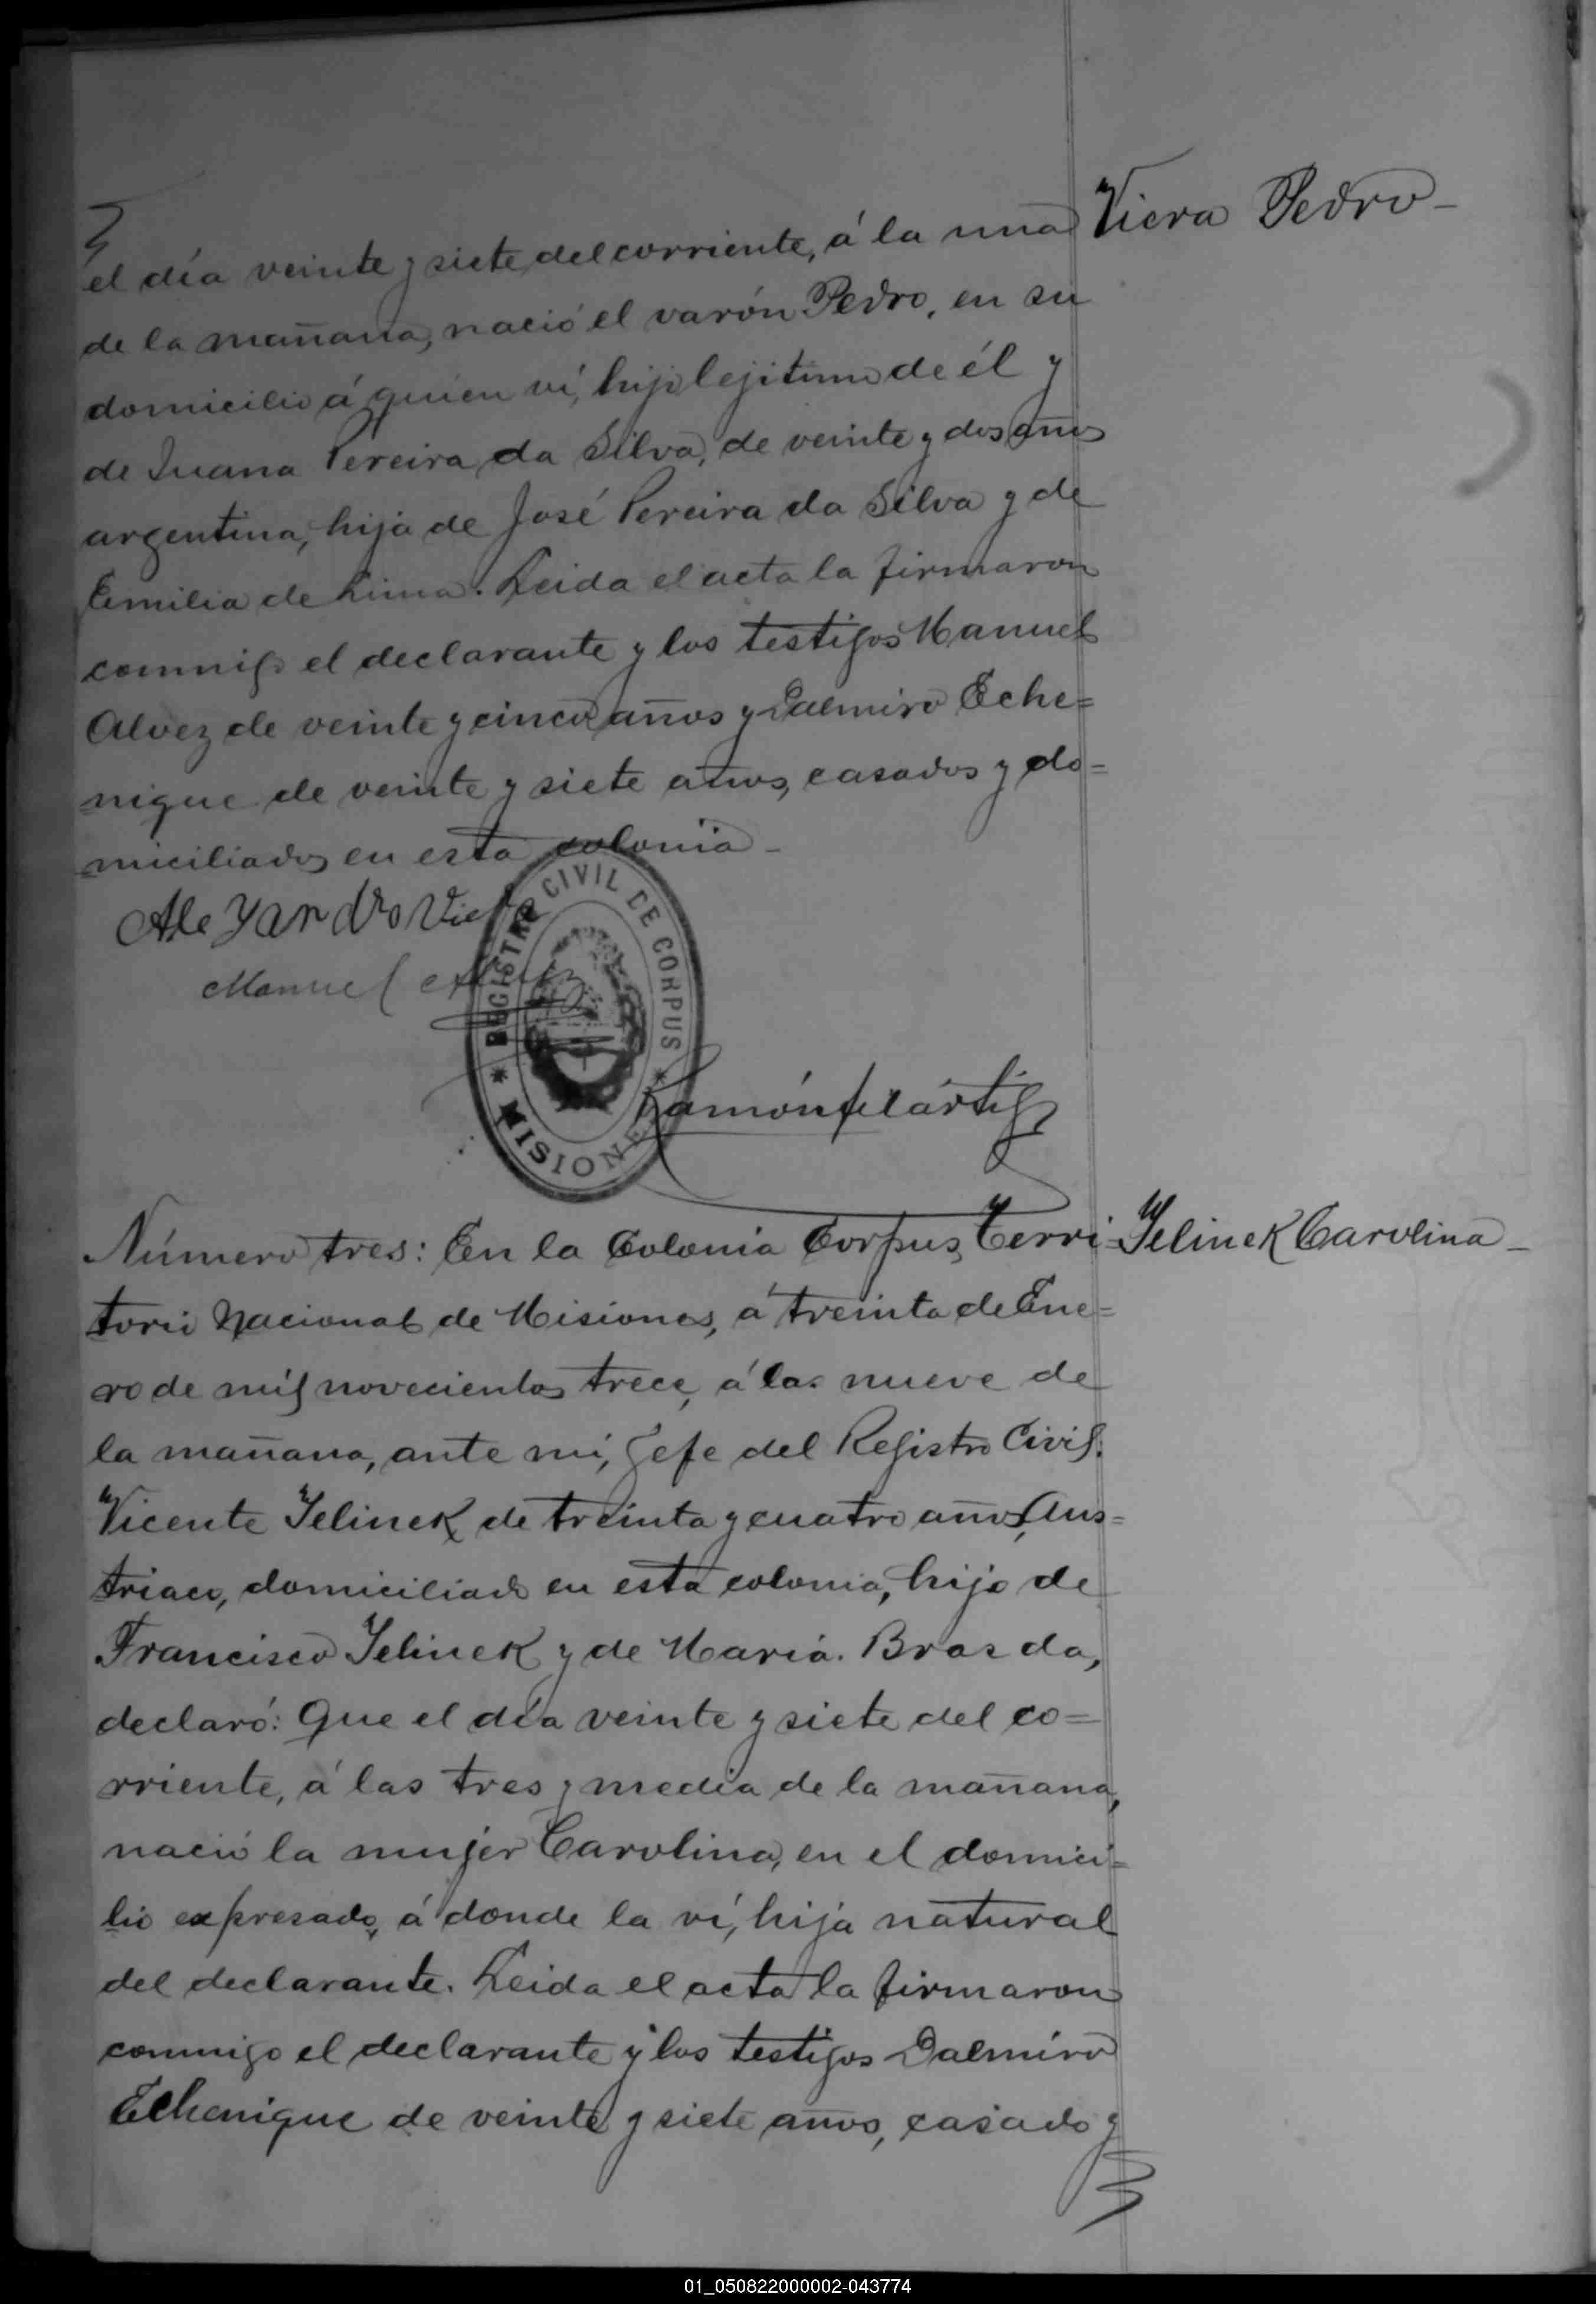 Viera Pedro-
el día veinte y siete del corriente, á la una
de la mañana, nació el varón Pedro, en su
domicilio á quien ví, hijo lejitimo de él y
de Juana Pereira da Silva, de veinte y dos años
argentina, hija de José Pereira da Silva y de
Emilia de Lima. Leida el acta la firmaron
conmigo el declarante y los testigos Manuel
Alvez de veinte y cinco años y Dalmiro Eche=
nique de veinte y siete años, casados y do=
miciliados en esta colonia-
Aleyandro Viera
Manuel Alvez
REGISTRO CIVIL DE CORPUS
* MISIONES *
Ramón
Número tres: En la Colonia Corpus, Terri=
Jelinek Carolina-
torio Nacional de Misiones, á treinta de Ene=
ro de mil novecientos trece, á las nueve de
la mañana, ante mí, Jefe del Registro Civil:
Vicente Jelinek de treinta y cuatro años, Aus=
triaco, domiciliado en esta colonia, hijo de
Francisco Jelinek y de Maria Brasda,
declaró: Que el día veinte y siete del co=
rriente, á las tres y media de la mañana,
nació la mujer Carolina, en el domici=
lio expresado, á donde la ví, hija natural
del declarante. Leida el acta la firmaron
conmigo el declarante y los testigos Dalmiro
Echenique de veinte y siete años, casado y
01_050822000002-043774